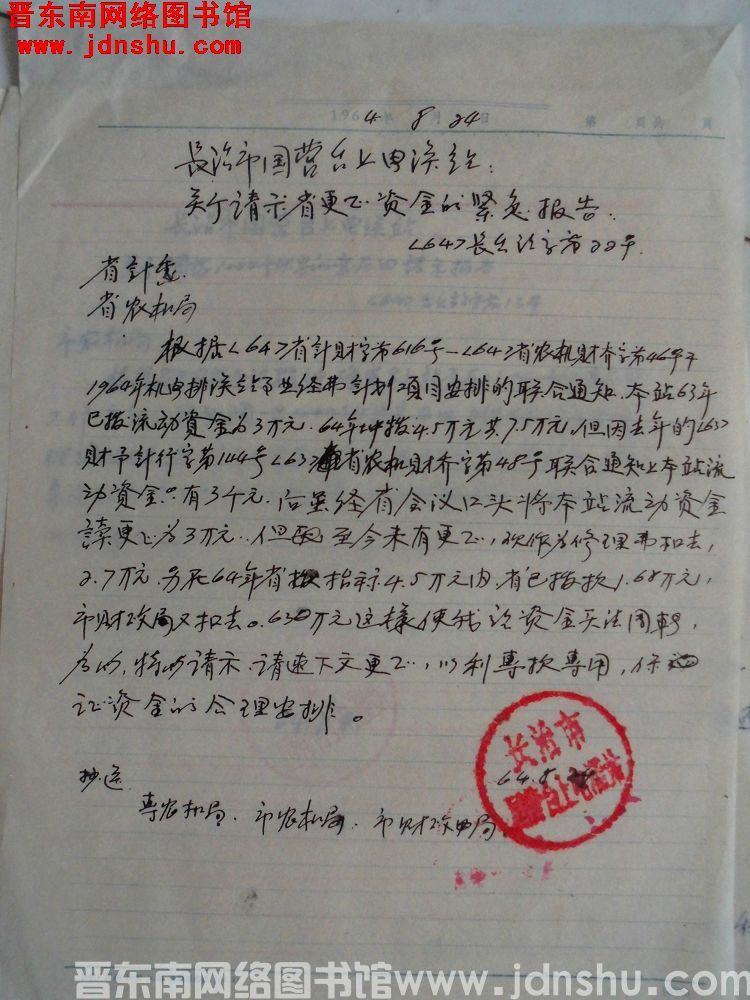 晋东南网络图书馆
www.jdnshu.com
1964年 8月24日 第 页共 页
长治市国营台上电涣站:
关于请示省更正资金的紧急报告.
<64>长台涣字第22号
省計委.
省农机局
根据<64>省計財字第616号—<64>省农机財齐字第46号
1964年机电排涣站事业经费計划项目安排的联合通知.本站63年
已拨流动资金为3万元.64年拨4.5万元共7.5万元,但因去年的<63>
財予計行字第144号<63>省农机財齐字第48号联合通知上本站流
动资金只有3千元.后虽经省会议口头将本站流动资金
更正为3万元.但至今未有更正,欲作为修理费扣去,
2.7万元.另在64年省拨指标4.5万元内,省已拨款1.68万元,
市財政局又扣去0.63万元这样使我站资金无法周轉,
为此,特此请示.请速下文更正,以利專款專用,保
证资金的合理安排。
抄送
64.8.24
專农机局.市农机局.市財政局
长治市
晋东南网络图书馆www.jdnshu.com